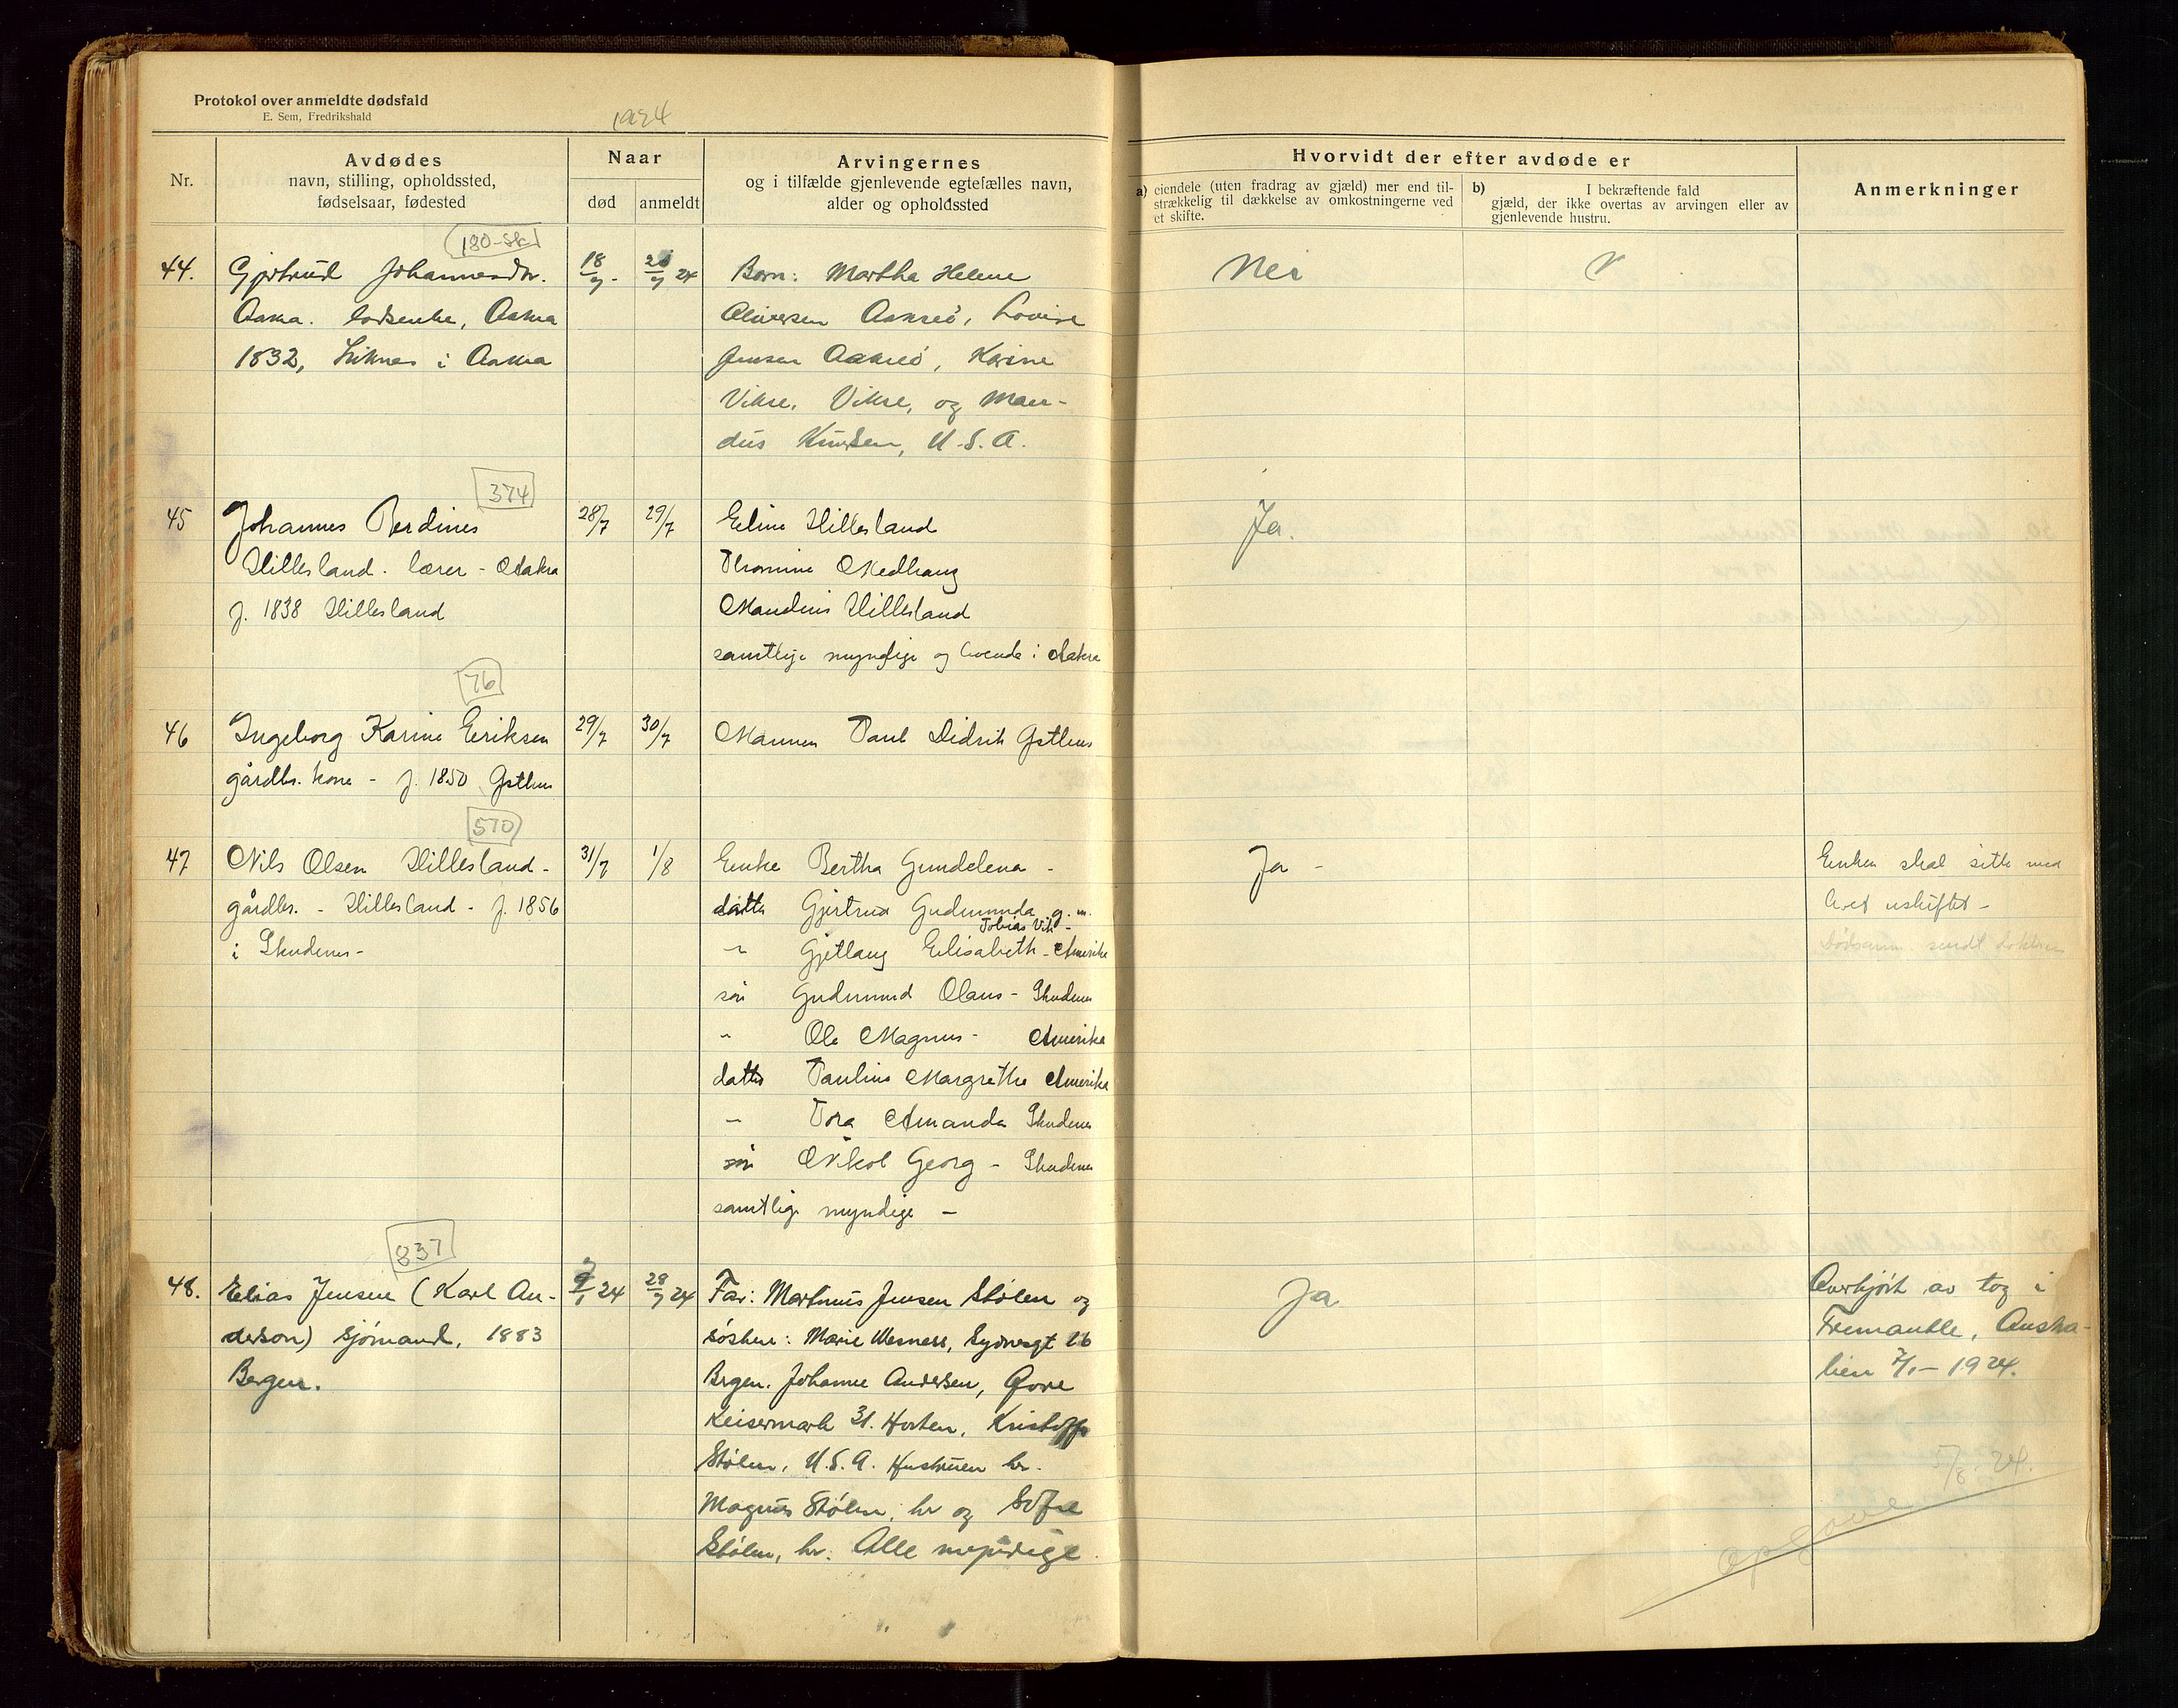 Protokol over anmeldte dødsfald
E. Sem, Fredrikshald
1924
Nr.
Avdødes
navn, stilling, opholdssted,
fødselsaar, fødested
Naar
død
anmeldt
Arvingernes
og i tilfælde gjenlevende egtefælles navn,
alder og opholdssted
Hvorvidt der efter avdøde er
a) eiendele (uten fradrag av gjæld) mer end til-
strækkelig til dækkelse av omkostningerne ved
et skifte.
b) I bekræftende fald
gjæld, der ikke overtas av arvingen eller av
gjenlevende hustru.
Anmerkninger
180-sk
44.
Gjertrud Johannesdtr.
Aakra. lodsenke, Aakra
1832, i Aakra
18/7-
24
Barn: Martha Helene
Oliversen Aakreö, Lovise
Jensen Aakreö, Karine
Vikre, Vikre, og Man-
dus Knudsen, U.S.A.
Nei
374
45
Johannes Berdines
Hillesland. lærer - Aakra
f. 1838 Hillesland
28/7
29/7
Eline Hillesland
Thomine Medhaug
Maudius Hillesland
samtlige myndige og boende i Aakra
Ja.
76
46
Ingeborg Karine Eriksen
gårdbr. kone - f. 1850
29/7
30/7
Mannen Paul Didrik
570
47
Nils Olsen Hillesland -
gårdbr. - Hillesland - f. 1856
i Skudenes -
31/7
1/8
Enke Bertha Gundelena -
datter Gjertrud Gudmunda g. m.
Tobias Vik -
" Gjetlaug Elisabeth - Amerika
sön Gudmund Olaus - Skudenes
" Ole Magnus - Amerika
datter Pauline Margrethe Amerika
" Tora Amanda Skudenes
sön Nikol Georg - Skudenes
samtlige myndige -
Ja -
Enken skal sitte med
boet uskiftet -
Dödsanm. sendt
837
48.
Elias Jensen (Karl An-
derson) sjömand, 1883
Bergen.
24
28/7 24
Far: Martinus Jensen Stölen og
söskene: Marie 26
Bergen. Johanne Andersen,
Keisermark 31. Horten, Kristoffer
Stölen, U.S.A. Hustruen her.
Magnus Stölen, her og Sofie
Stölen, her. Alle myndige
Ja
Overkjört av tog i
Fremantle, Austra-
lien 7/1 - 1924.
5/8. 24.
opgave